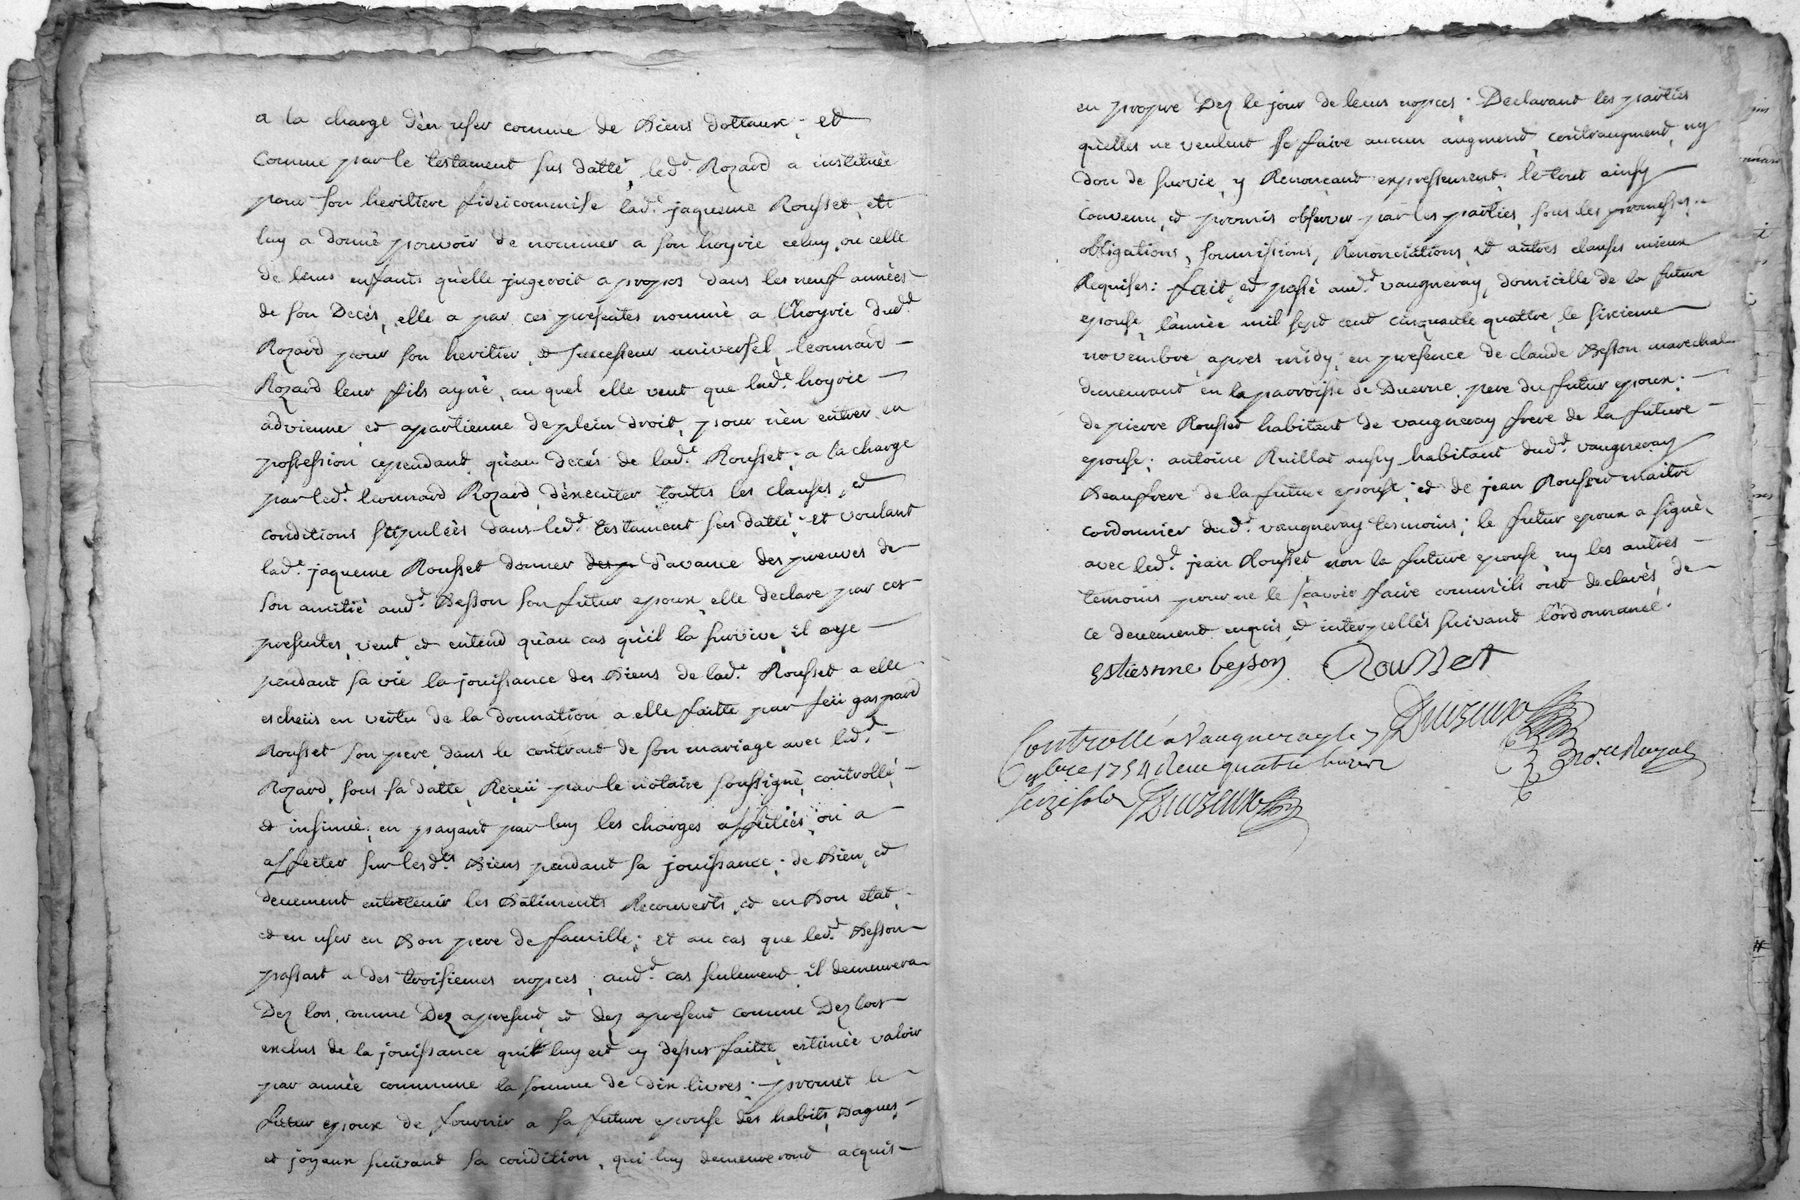 a la charge d'en user comme de Biens dottaux; et
comme par le testament sus datté, led.t Rozard a instituée
pour son heritiere fideicommise lad.e jaqueme Rousset, et
luy a donné pouvoir de nommer a son hoyrie celuy, ou celle
de leurs enfants qu'elle jugeroit apropos dans les neuf années
de son Decés, elle a par ces presentes nommé a l'hoyrie dud.t
Rozard pour son heritier, et successeur universel, leonnard
Rozard leur fils ayné, au quel elle veut que lad.e hoyrie
advienne et apartienne de plein droit, pour n'en entrer en
possession cependant qu'au decés de lad.e Rousset; a la charge
par led.t leonnard Rozard, d'executer toutes les clauses, et
conditions stipulées dans led.t testament sus datté; et voulant
lad.e jaqueme Rousset donner des p d'avance des preuves de
son amitié aud.t Besson son futur epoux, elle declare par ces
presentes, veut, et entend qu'au cas qu'il la survive, il aye
pendant sa vie la jouissance des Biens de lad.e Rousset a elle
escheüs en vertu de la donnation a elle faitte par feü gaspard
Rousset son pere, dans le contract de son mariage avec led.t
Rozard, sous sa datte, Receü par le notaire soussigné, controllé,
et insinué; en payant par luy les charges affectées, ou a
affecter sur lesd.ts Biens pendant sa jouissance; de Bien, et
deuement entretenir les Batiments Recouverts, et en Bon etat,
et en user en Bon pere de famille; et au cas que led.t Besson
passat a des troisiemes nopces, aud.t cas seulement, il demeurera
Dez lors, comme Dez apresent, et dez apresent comme Dez lors
exclus de la jouissance quil luy est cy dessus faitte, estimée valoir
par année commune la somme de dix livres; promet le
futur epoux de fournir a sa future epouse des habits, Bagues,
et joyaux suivant sa condition, qui luy demeureront acquis
en propre Dez le jour de leurs nopces; Declarant les parties
qu'elles ne veulent se faire aucun augment, contraugment, ny
don de survie, y Renonceant expressement; le tout ainsy
convenu, et promis observer par les parties, sous les promesses,
obligations, soumissions, Renonciations, et autres clauses mieux
Requises: fait, et passé aud.t vaugneray, domicille de la future
epouse, l'année mil sept cent cinquante quattre, le sixieme
novembre, apres midy; en presence de claude Besson marechal
demeurant en la parroisse de Duerne, pere du futur epoux;
de pierre Rousset habitant de vaugneray frere de la future
epouse; antoine Ruillat aussy habitant dud.t vaugneray
Beaufrere de la future epouse; et de jean Rousset maitre
cordonnier dud.t vaugneray tesmoins; le futur epoux a signé,
avec led.t jean Rousset non la future epouse, ny les autres
temoins pour ne le sçavoir faire comm'ils ont declarés, de
ce deuement enquis, et interpellés suivant l'ordonnance.
Estienne besson Rousset
Controllé a Vaugneray le 7
9bre 1754 Receu quatre livres
seize sols
No.re Royal